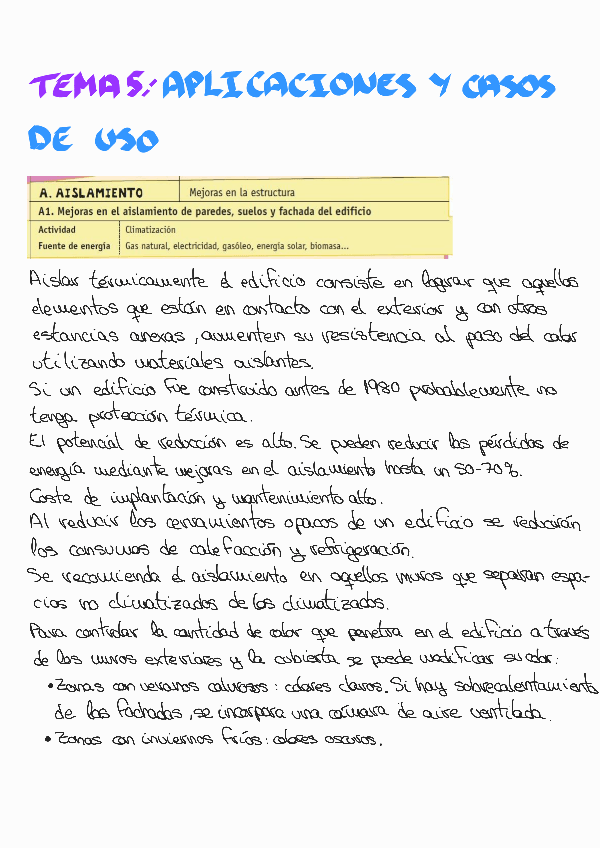 TEMA 5: APLICACIONES Y CASOS
DE USO
A. AISLAMIENTO Mejoras en la estructura
A1. Mejoras en el aislamiento de paredes, suelos y fachada del edificio
Actividad Climatización
Fuente de energía Gas natural, electricidad, gasóleo, energía solar, biomasa...
Aislar térmicamente el edificio consiste en lograr que aquellos
elementos que están en contacto con el exterior y con otras
estancias anexas, aumenten su resistencia al paso del calor
utilizando materiales aislantes.
Si un edificio fue construido antes de 1980 probablemente no
tenga protección térmica.
El potencial de reducción es alto. Se pueden reducir las pérdidas de
energía mediante mejoras en el aislamiento hasta un 50-70%.
Coste de implantación y mantenimiento alto.
Al reducir los cerramientos opacos de un edificio se reducirán
los consumos de calefacción y refrigeración.
Se recomienda el aislamiento en aquellos muros que separan espa-
cios no climatizados de los climatizados.
Para controlar la cantidad de calor que penetra en el edificio a través
de los muros exteriores y la cubierta se puede modificar su color:
• Zonas con veranos calurosos: colores claros. Si hay sobrecalentamiento
de las fachadas, se incorpora una cámara de aire ventilada.
• Zonas con inviernos fríos: colores oscuros.